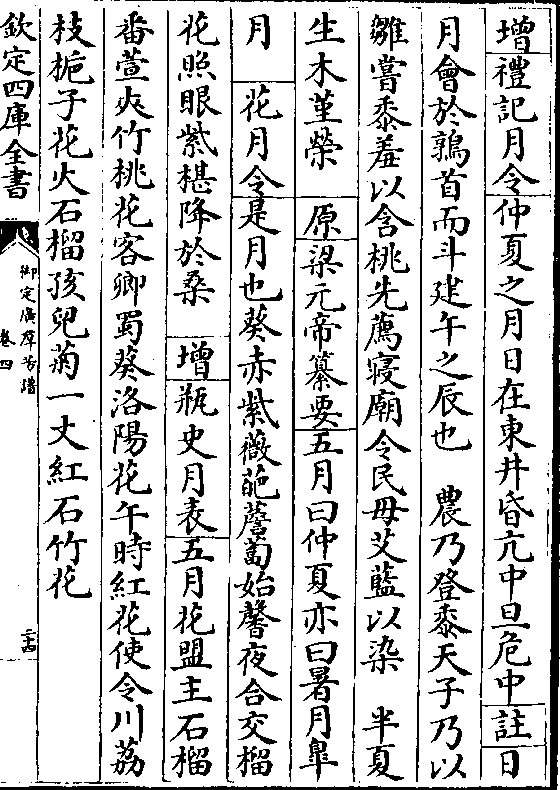 增禮記月令仲夏之月日在東井昏亢中旦危中註日
月會於鶉首而斗建午之辰也　農乃登黍天子乃以
雛嘗黍羞以含桃先薦寢廟令民毋艾藍以染　半夏
生木堇榮　原梁元帝纂要五月曰仲夏亦曰暑月臯
月　花月令是月也葵赤紫薇葩薝蔔始馨夜合交榴
花照眼紫椹降於桑　增瓶史月表五月花盟主石榴
番萱夾竹桃花客卿蜀葵洛陽花午時紅花使令川荔
枝梔子花火石榴孩兒菊一丈紅石竹花
欽定四庫全書
御定廣羣芳譜
卷四
二十四